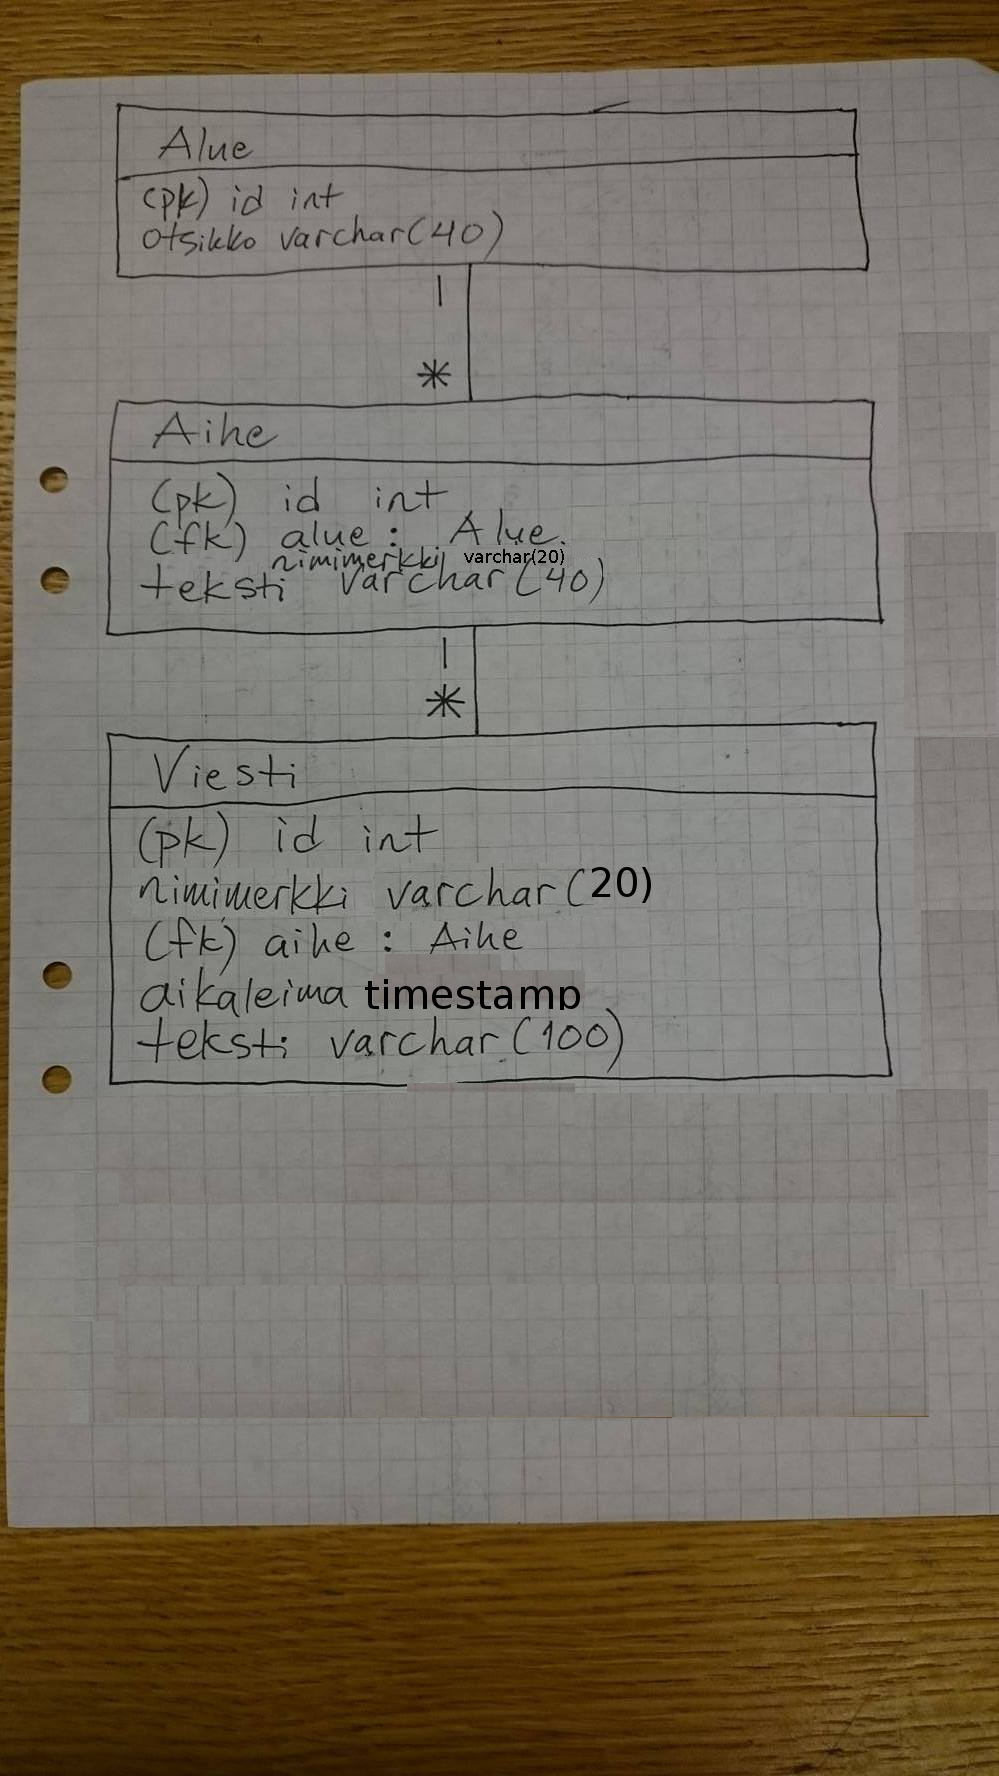 Alue
(pk) id int
otsikko varchar(40)
1
*
Aihe
(pk) id int
(fk) alue : Alue
nimimerkki varchar(20)
teksti varchar(40)
1
*
Viesti
(pk) id int
nimimerkki varchar(20)
(fk) aihe : Aihe
aikaleima timestamp
teksti varchar(100)